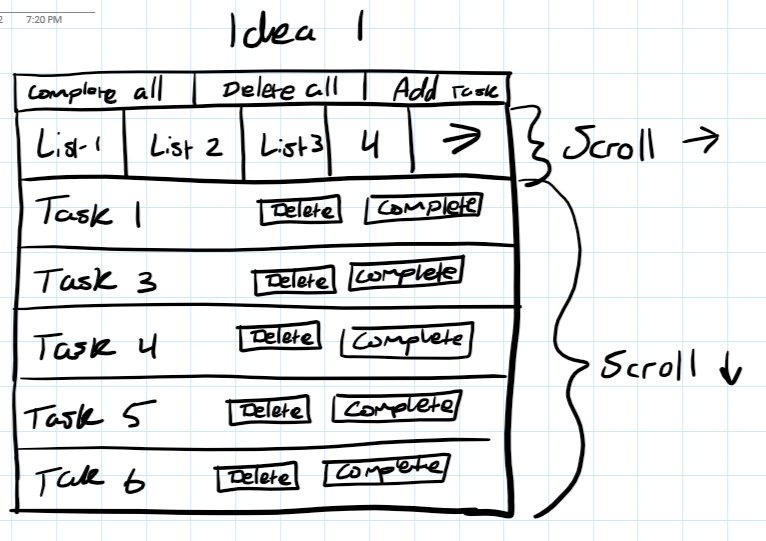 2 7:20 PM
Idea 1
Complete all Delete all Add Task
List 1 List 2 List 3 4 → Scroll →
Task 1 Delete Complete
Task 3 Delete Complete
Task 4 Delete Complete
Scroll ↓
Task 5 Delete Complete
Task 6 Delete Complete